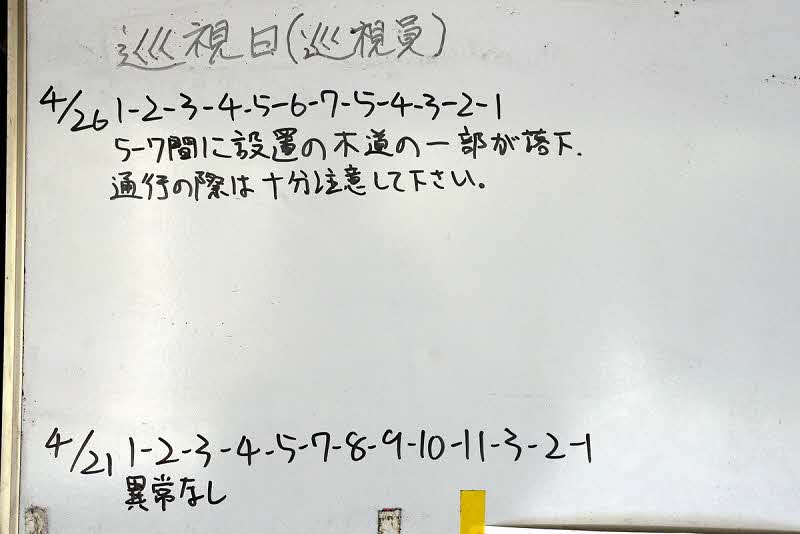 巡視日(巡視員)
4/26 1-2-3-4-5-6-7-5-4-3-2-1
5-7間に設置の木道の一部が落下.
通行の際は十分注意して下さい。
4/21 1-2-3-4-5-7-8-9-10-11-3-2-1
異常なし